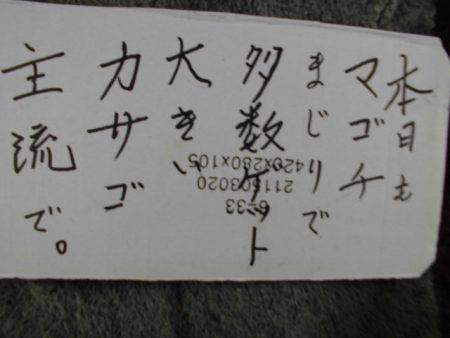 本日も
マゴチ
まじりで
多数ゲット
大きい
カサゴ
主流で。
6-33
211503020
1420x280x105